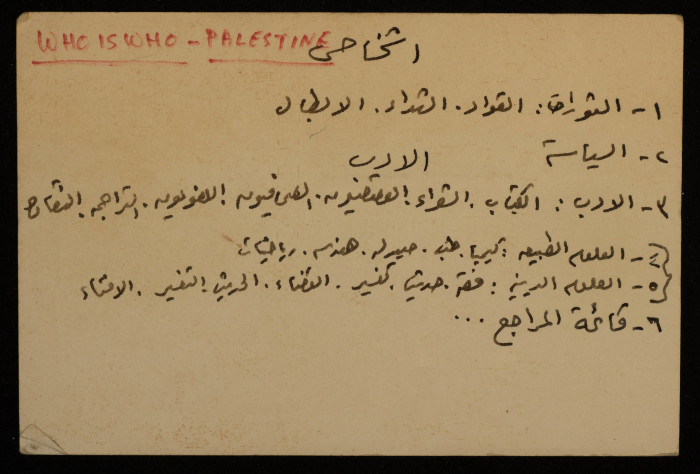 WHO IS WHO - PALESTINE
اشخاص
١- الثورات: القواد. الشهداء. الابطال
٢- السياسة
الادب
٣- الادب: الكتاب. الشعراء. القصصيون. الصحافيون. اللغويون. التراجمه. النقاد
٤- العلوم الطبيعه: كيميا. طب. صيدله. هندسه. رياضيات
٥- العلوم الدينيه: فقه. حديث. تفسير. القضاء. الحديث. التفسير. الافتاء
٦- قائمة المراجع ...